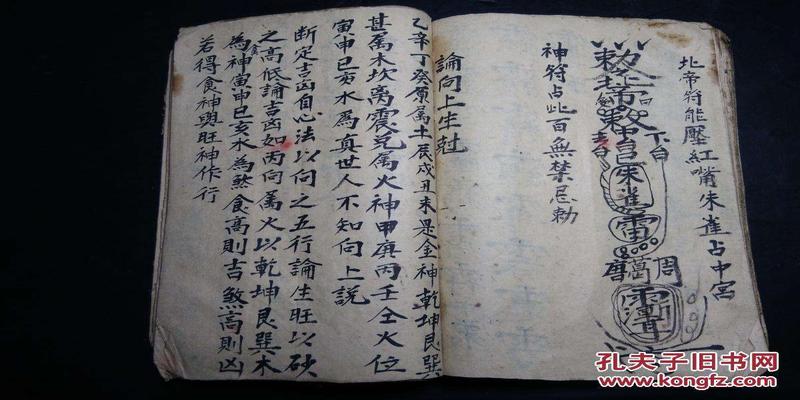 北帝符能壓紅嘴朱雀占中宮
敕北帝敕
下台
朱雀
雷
唐 葛 周
神符占此百無禁忌勅
論向上生尅
乙辛丁癸原属土辰戌丑未是金神乾坤艮巽
甚属木坎离震兑属火神甲庚丙壬仝火位
寅申巳亥水為真世人不知向上說
断定吉凶自心法以向之五行論生旺以砂
之高低論吉凶如丙向属火以乾坤艮巽木
為食神寅申巳亥水為煞食高則吉煞高則凶
若得食神與旺神作行
孔夫子旧书网
www.kongfz.com